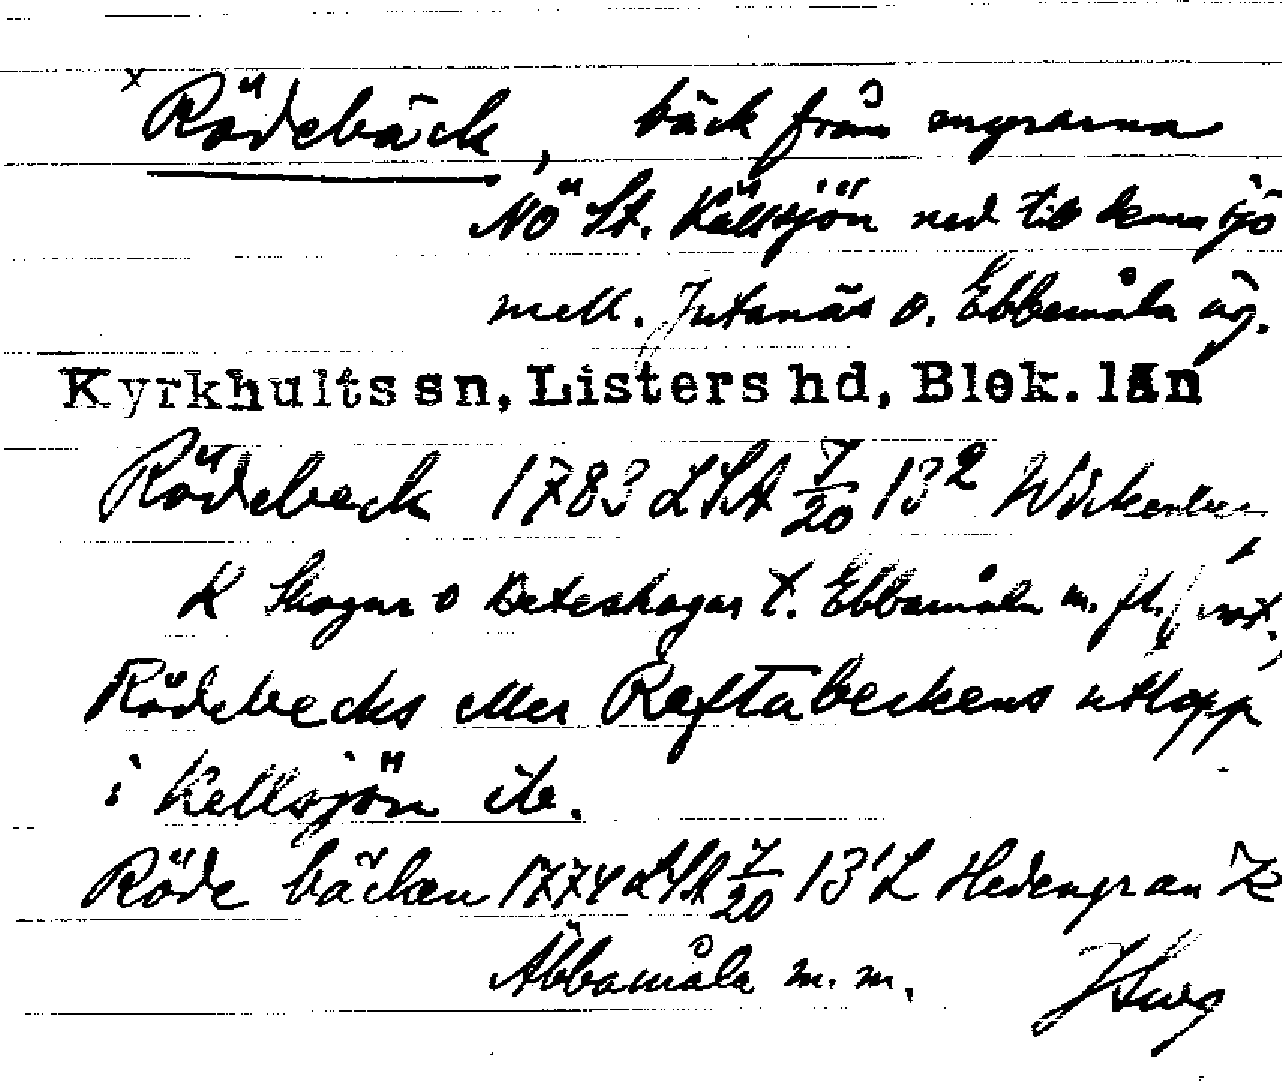 x Rödebäck, bäck från myrarna
NÖ St. Källsjön ned till denna sjö
mell. Jutanäs o. Ebbamåla äg.
Kyrkhults sn, Listers hd, Blek. län
Rödebeck 1783 LSA 7/20 13²
K Skogar o Beteshagar t. Ebbamåla m. fl.
Rödebecks eller Raftabeckens utlopp
i Kellsjön ib.
Röde bäcken 1774 LSA 7/20 13¹ L Hedengran K
Äbbamåla m. m.